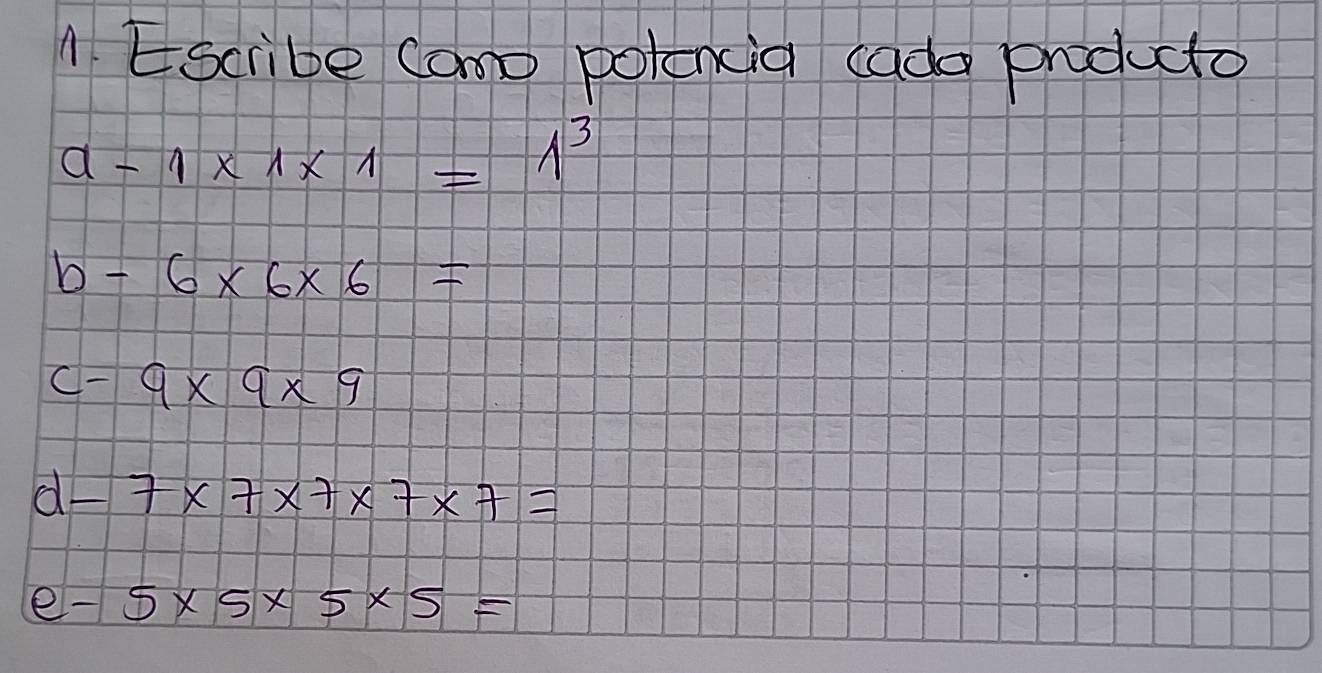 1. Escribe como potencia cada producto
a - 1 x 1 x 1 = 1³
b - 6 x 6 x 6 =
c - 9 x 9 x 9
d - 7 x 7 x 7 x 7 x 7 =
e - 5 x 5 x 5 x 5 =